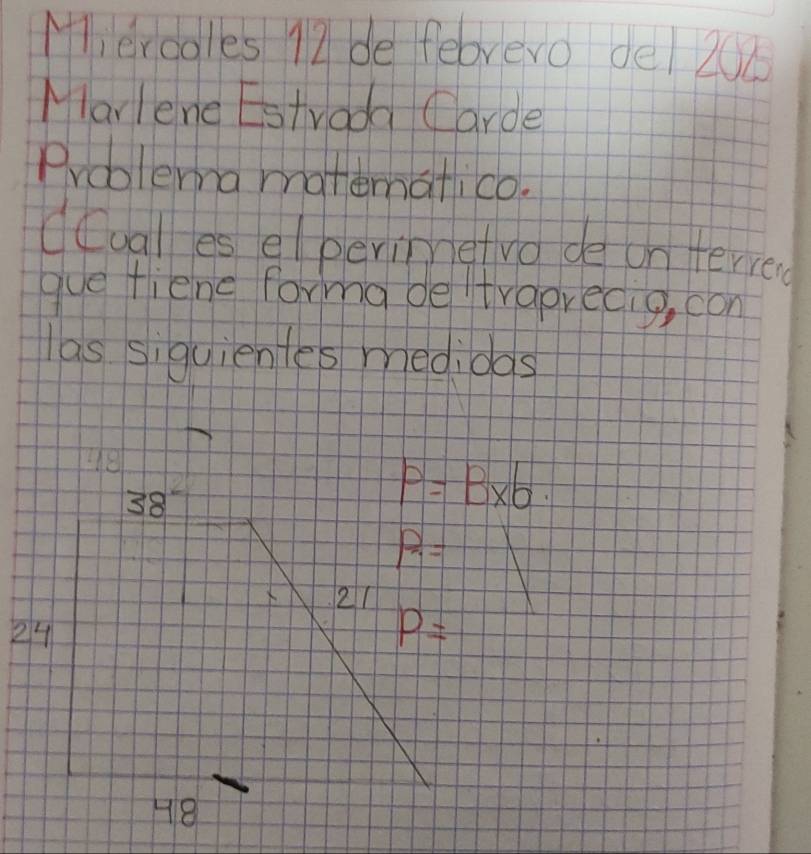 Miércoles 12 de febrero del 2025
Marlene Estrada Carde
Problema matemático.
¿Cual es el perimetro de un terreno
que tiene forma de traprecio, con
las siguientes medidas
48
38
P= Bxb.
P=
21
P=
24
48